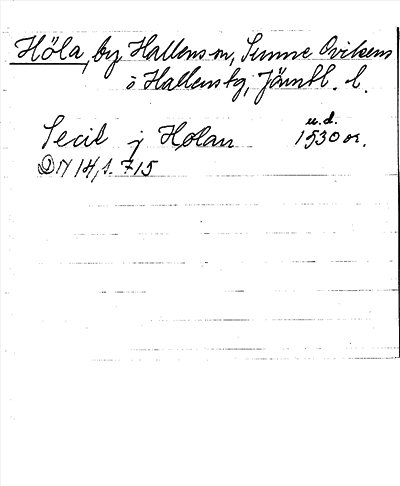 Höla, by Hallens sn, Sunne Ovikens
o Hallens tg, Jämtl. l.
u.d.
Secil j Holan 1530 or.
DN 14, s. 715